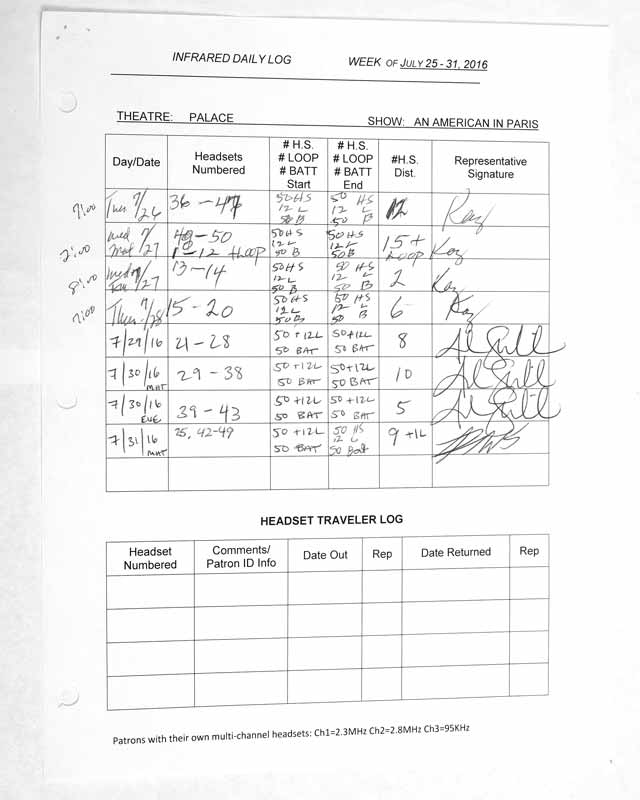 INFRARED DAILY LOG WEEK OF JULY 25 - 31, 2016
THEATRE: PALACE SHOW: AN AMERICAN IN PARIS
Day/Date Headsets Numbered # H.S. # LOOP # BATT Start # H.S. # LOOP # BATT End #H.S. Dist. Representative Signature
7:00 Tues 7/26 36 - 47 50 HS 12 L 50 B 50 HS 12 L 50 B 12 Kay
2:00 Wed Mat 7/27 48 - 50 1 - 12 +LOOP 50 HS 12 L 50 B 50 HS 12 L 50 B 15 + LOOP Kay
8:00 Wed 7/27 13 - 14 50 HS 12 L 50 B 50 HS 12 L 50 B 2 Kay
7:00 Thurs 7/28 15 - 20 50 HS 12 L 50 B 50 HS 12 L 50 B 6 Kay
7/29/16 21 - 28 50 + 12L 50 BAT 50 + 12L 50 BAT 8
7/30/16 MAT 29 - 38 50 + 12L 50 BAT 50 + 12L 50 BAT 10
7/30/16 EVE 39 - 43 50 + 12L 50 BAT 50 + 12L 50 BAT 5
7/31/16 MAT 25, 42-49 50 + 12L 50 BAT 50 HS 12 L 50 Batt 9 + 1L
HEADSET TRAVELER LOG
Headset Numbered Comments/ Patron ID Info Date Out Rep Date Returned Rep
Patrons with their own multi-channel headsets: Ch1=2.3MHz Ch2=2.8MHz Ch3=95KHz